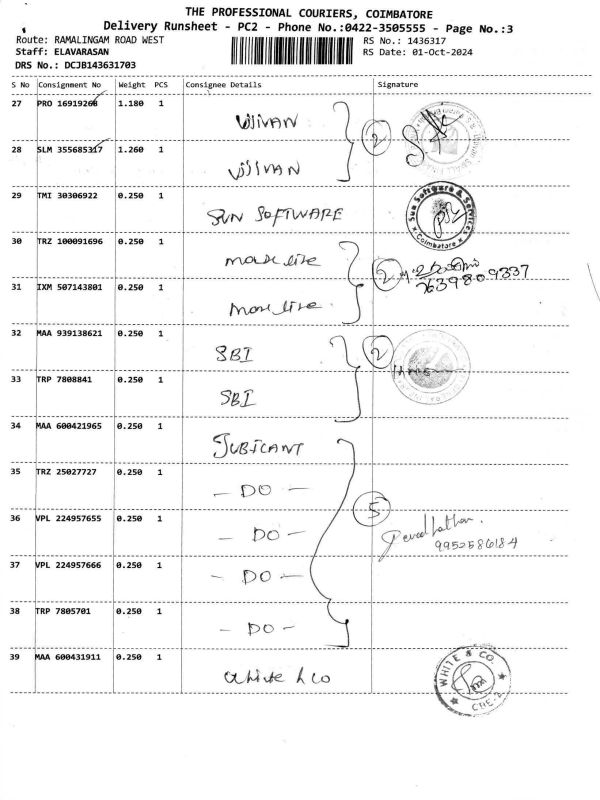 THE PROFESSIONAL COURIERS, COIMBATORE
Delivery Runsheet - PC2 - Phone No.:0422-3505555 - Page No.:3
Route: RAMALINGAM ROAD WEST RS No.: 1436317
Staff: ELAVARASAN RS Date: 01-Oct-2024
DRS No.: DCJB143631703
S No Consignment No Weight PCS Consignee Details Signature
27 PRO 16919268 1.180 1 VIJIVAN
2
28 SLM 355685317 1.260 1 VIJIVAN
29 TMI 30306922 0.250 1 SUN SOFTWARE Sun Software & Services Coimbatore
30 TRZ 100091696 0.250 1
2 7639809337
31 IXM 507143801 0.250 1
32 MAA 939138621 0.250 1 SBI
2
33 TRP 7808841 0.250 1 SBI
34 MAA 600421965 0.250 1 JUBICANT
35 TRZ 25027727 0.250 1 - DO -
5
36 VPL 224957655 0.250 1 - DO -
9952586184
37 VPL 224957666 0.250 1 - DO -
38 TRP 7805701 0.250 1 - DO -
39 MAA 600431911 0.250 1 White & Co WHITE & CO. CBE-2